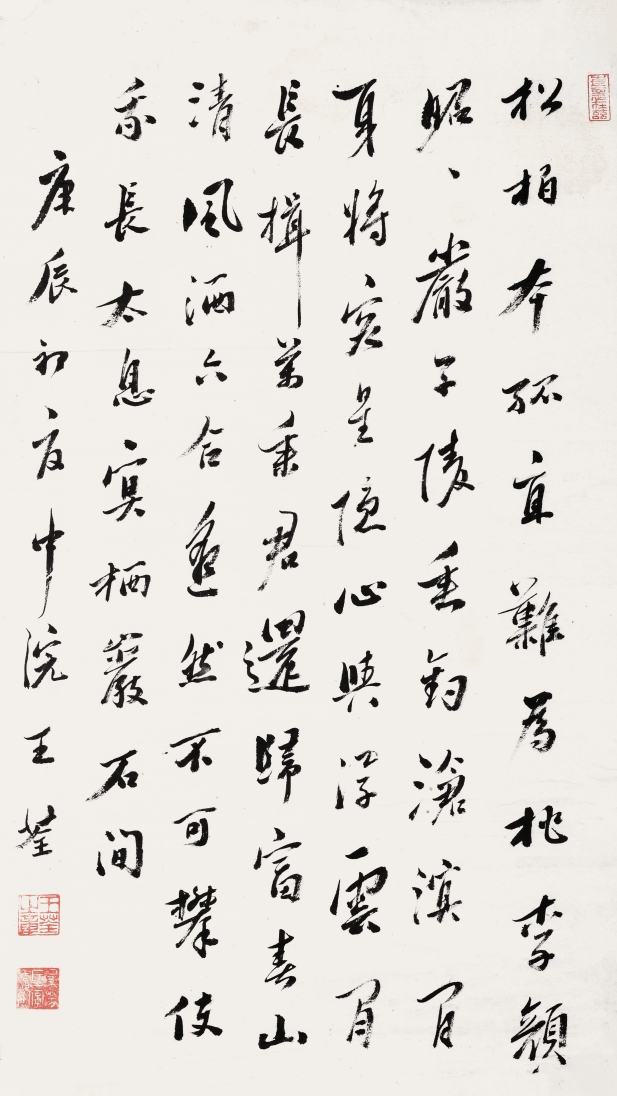 松柏本孤直難為桃李顏
昭〻嚴子陵垂釣滄溟間
身將客星隱心與浮雲間
長揖萬乘君還歸富春山
清風洒六合邈然不可攀使
我長太息冥栖巖石間
庚辰初夏中浣王荃